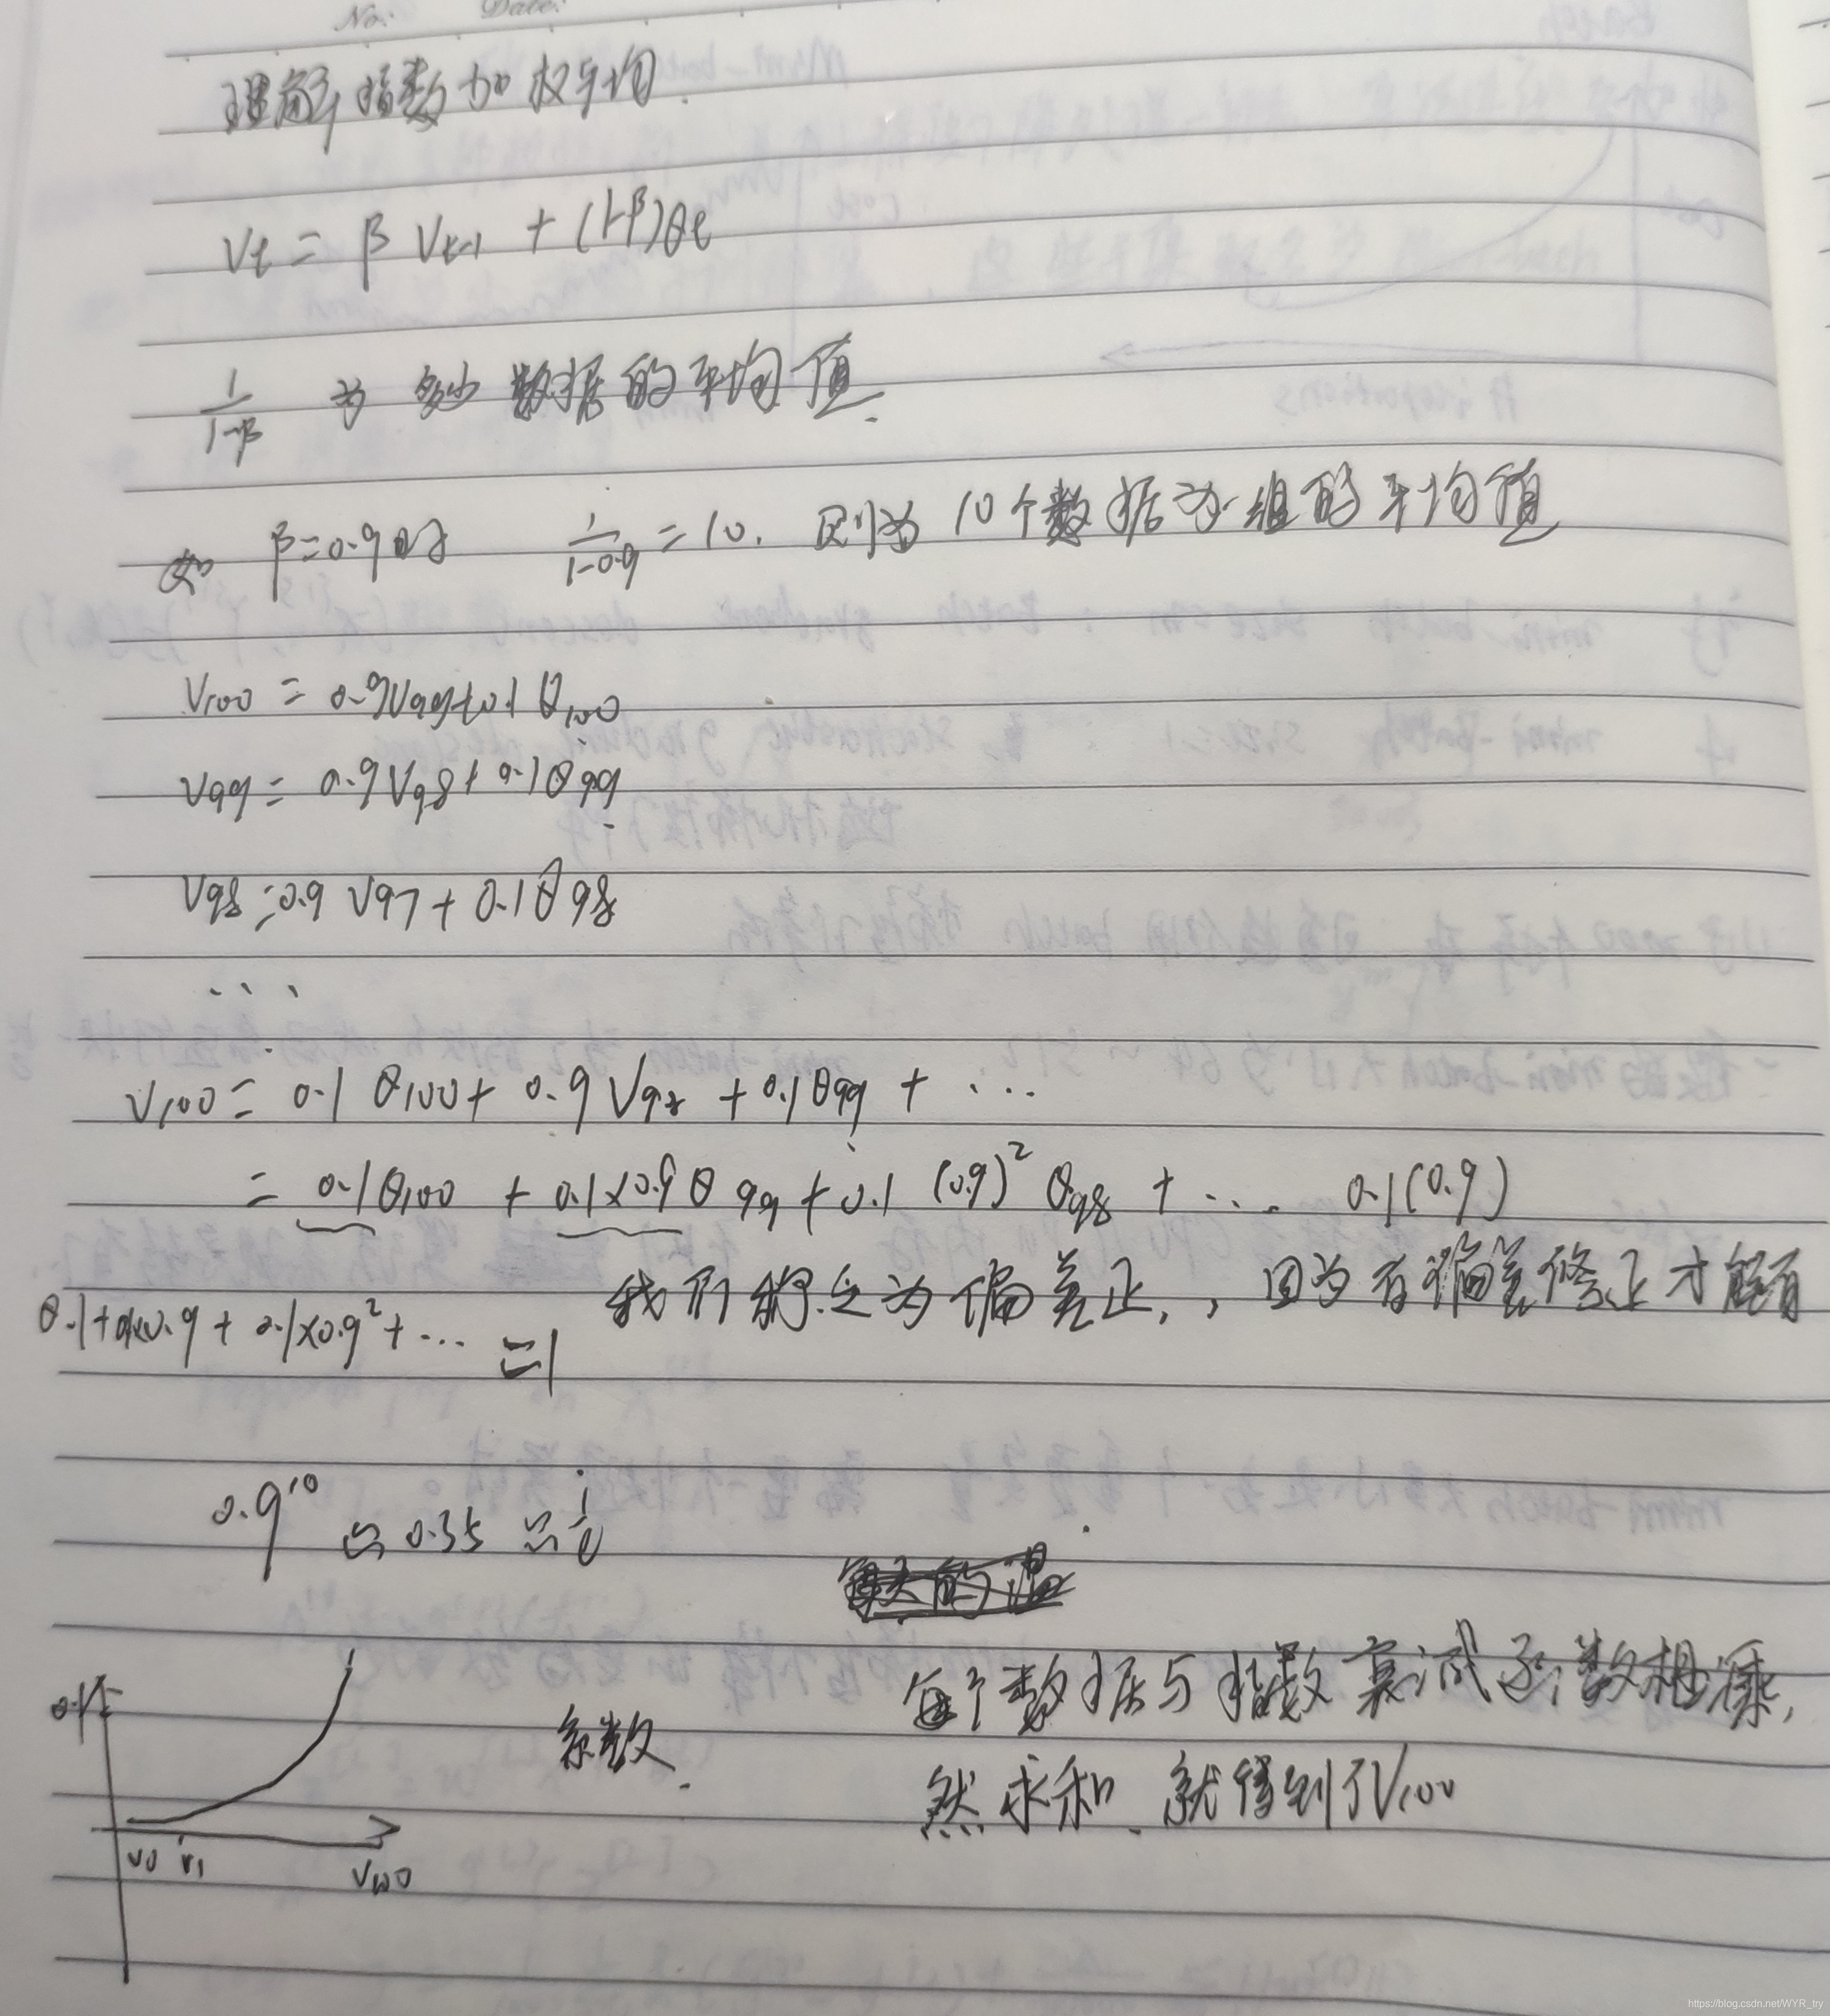 No: Date:
理解指数加权平均.
Vt = β Vt-1 + (1-β)θt
1/(1-β) 为多少数据的平均值.
如 β=0.9时 1/(1-0.9) = 10. 则为10个数据为一组的平均值
V100 = 0.9V99+0.1θ100
V99 = 0.9V98+0.1θ99
V98=0.9 V97+0.1θ98
...
V100 = 0.1 θ100 + 0.9 V98 + 0.1θ99 + ...
= 0.1θ100 + 0.1×0.9θ99 + 0.1(0.9)²θ98 + ... 0.1(0.9)
我们称之为偏差正, 因为有偏差修正才能有
0.1+0.1×0.9+0.1×0.9²+... =1
0.9¹⁰ ≈ 0.35 ≈ 1/e
每个数据与指数衰减函数相乘,
0.1
系数.
然求和. 就得到了V100
V0 V1 V100
https://blog.csdn.net/WYR_try